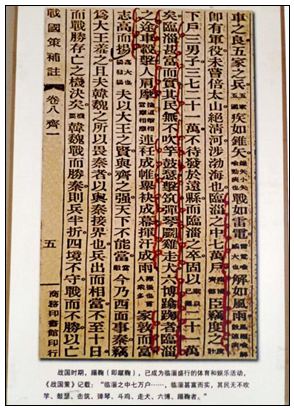 車之良五家之兵疾如錐矢戰如雷電解如風雨
即有軍役未嘗倍太山絕清河涉渤海也臨淄之中七萬戶臣竊度之
下戶三男子三七二十一萬不待發於遠縣而臨淄之卒固以二十一萬
矣臨淄甚富而實其民無不吹竽鼓瑟擊筑彈琴鬬雞走犬六博蹋踘者臨淄
之途車轂擊人肩摩連衽成帷舉袂成幕揮汗成雨家敦而富
志高而揚夫以大王之賢與齊之强天下不能當今乃西面事秦竊
爲大王羞之且夫韓魏之所以畏秦者以與秦接界也兵出而相當不至十日
而戰勝存亡之機決矣韓魏戰而勝秦則兵半折四境不守戰而不勝以亡
戰國策補註
卷八 齊
五
商務印書館印行
战国时期，蹋鞠（即蹴鞠），已成为临淄盛行的体育和娱乐活动，
《战国策》记载：“临淄之中七万户……，临淄甚富而实，其民无不吹
竽、鼓瑟、击筑、弹琴、斗鸡、走犬、六博、蹋鞠者。”